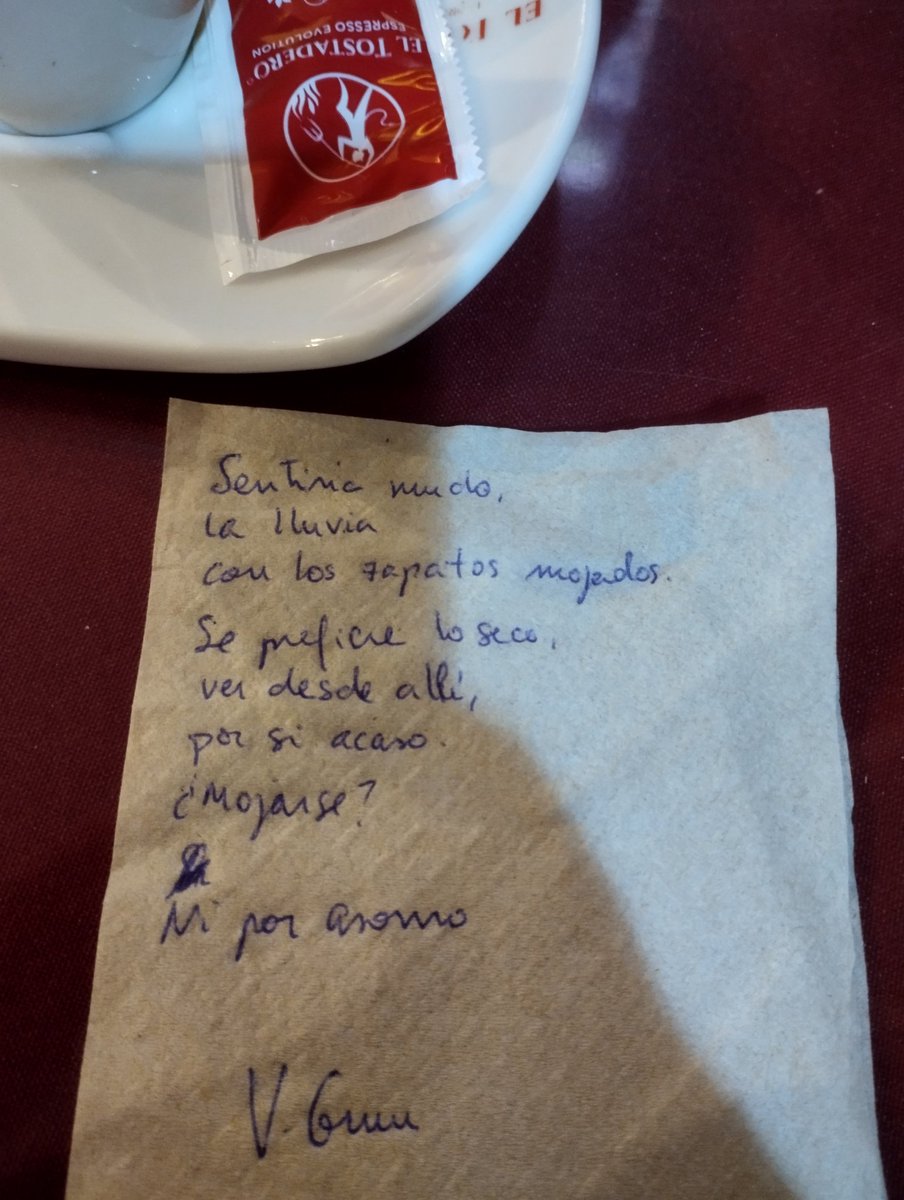 EL TOSTADERO
ESPRESSO EVOLUTION
EL
Sentiria mudo,
la lluvia
con los zapatos mojados.
Se prefiere lo seco,
ver desde allí,
por si acaso.
¿Mojarse?
Ni por asomo
V.